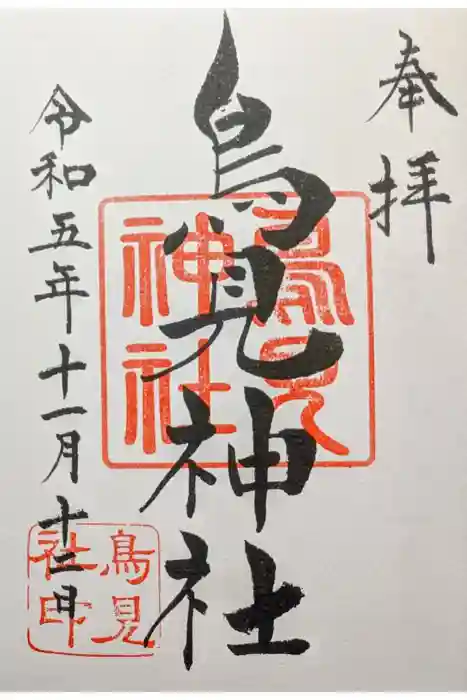 奉拝
鳥見神社
令和五年十一月十二日
鳥見
神社
鳥見
社印